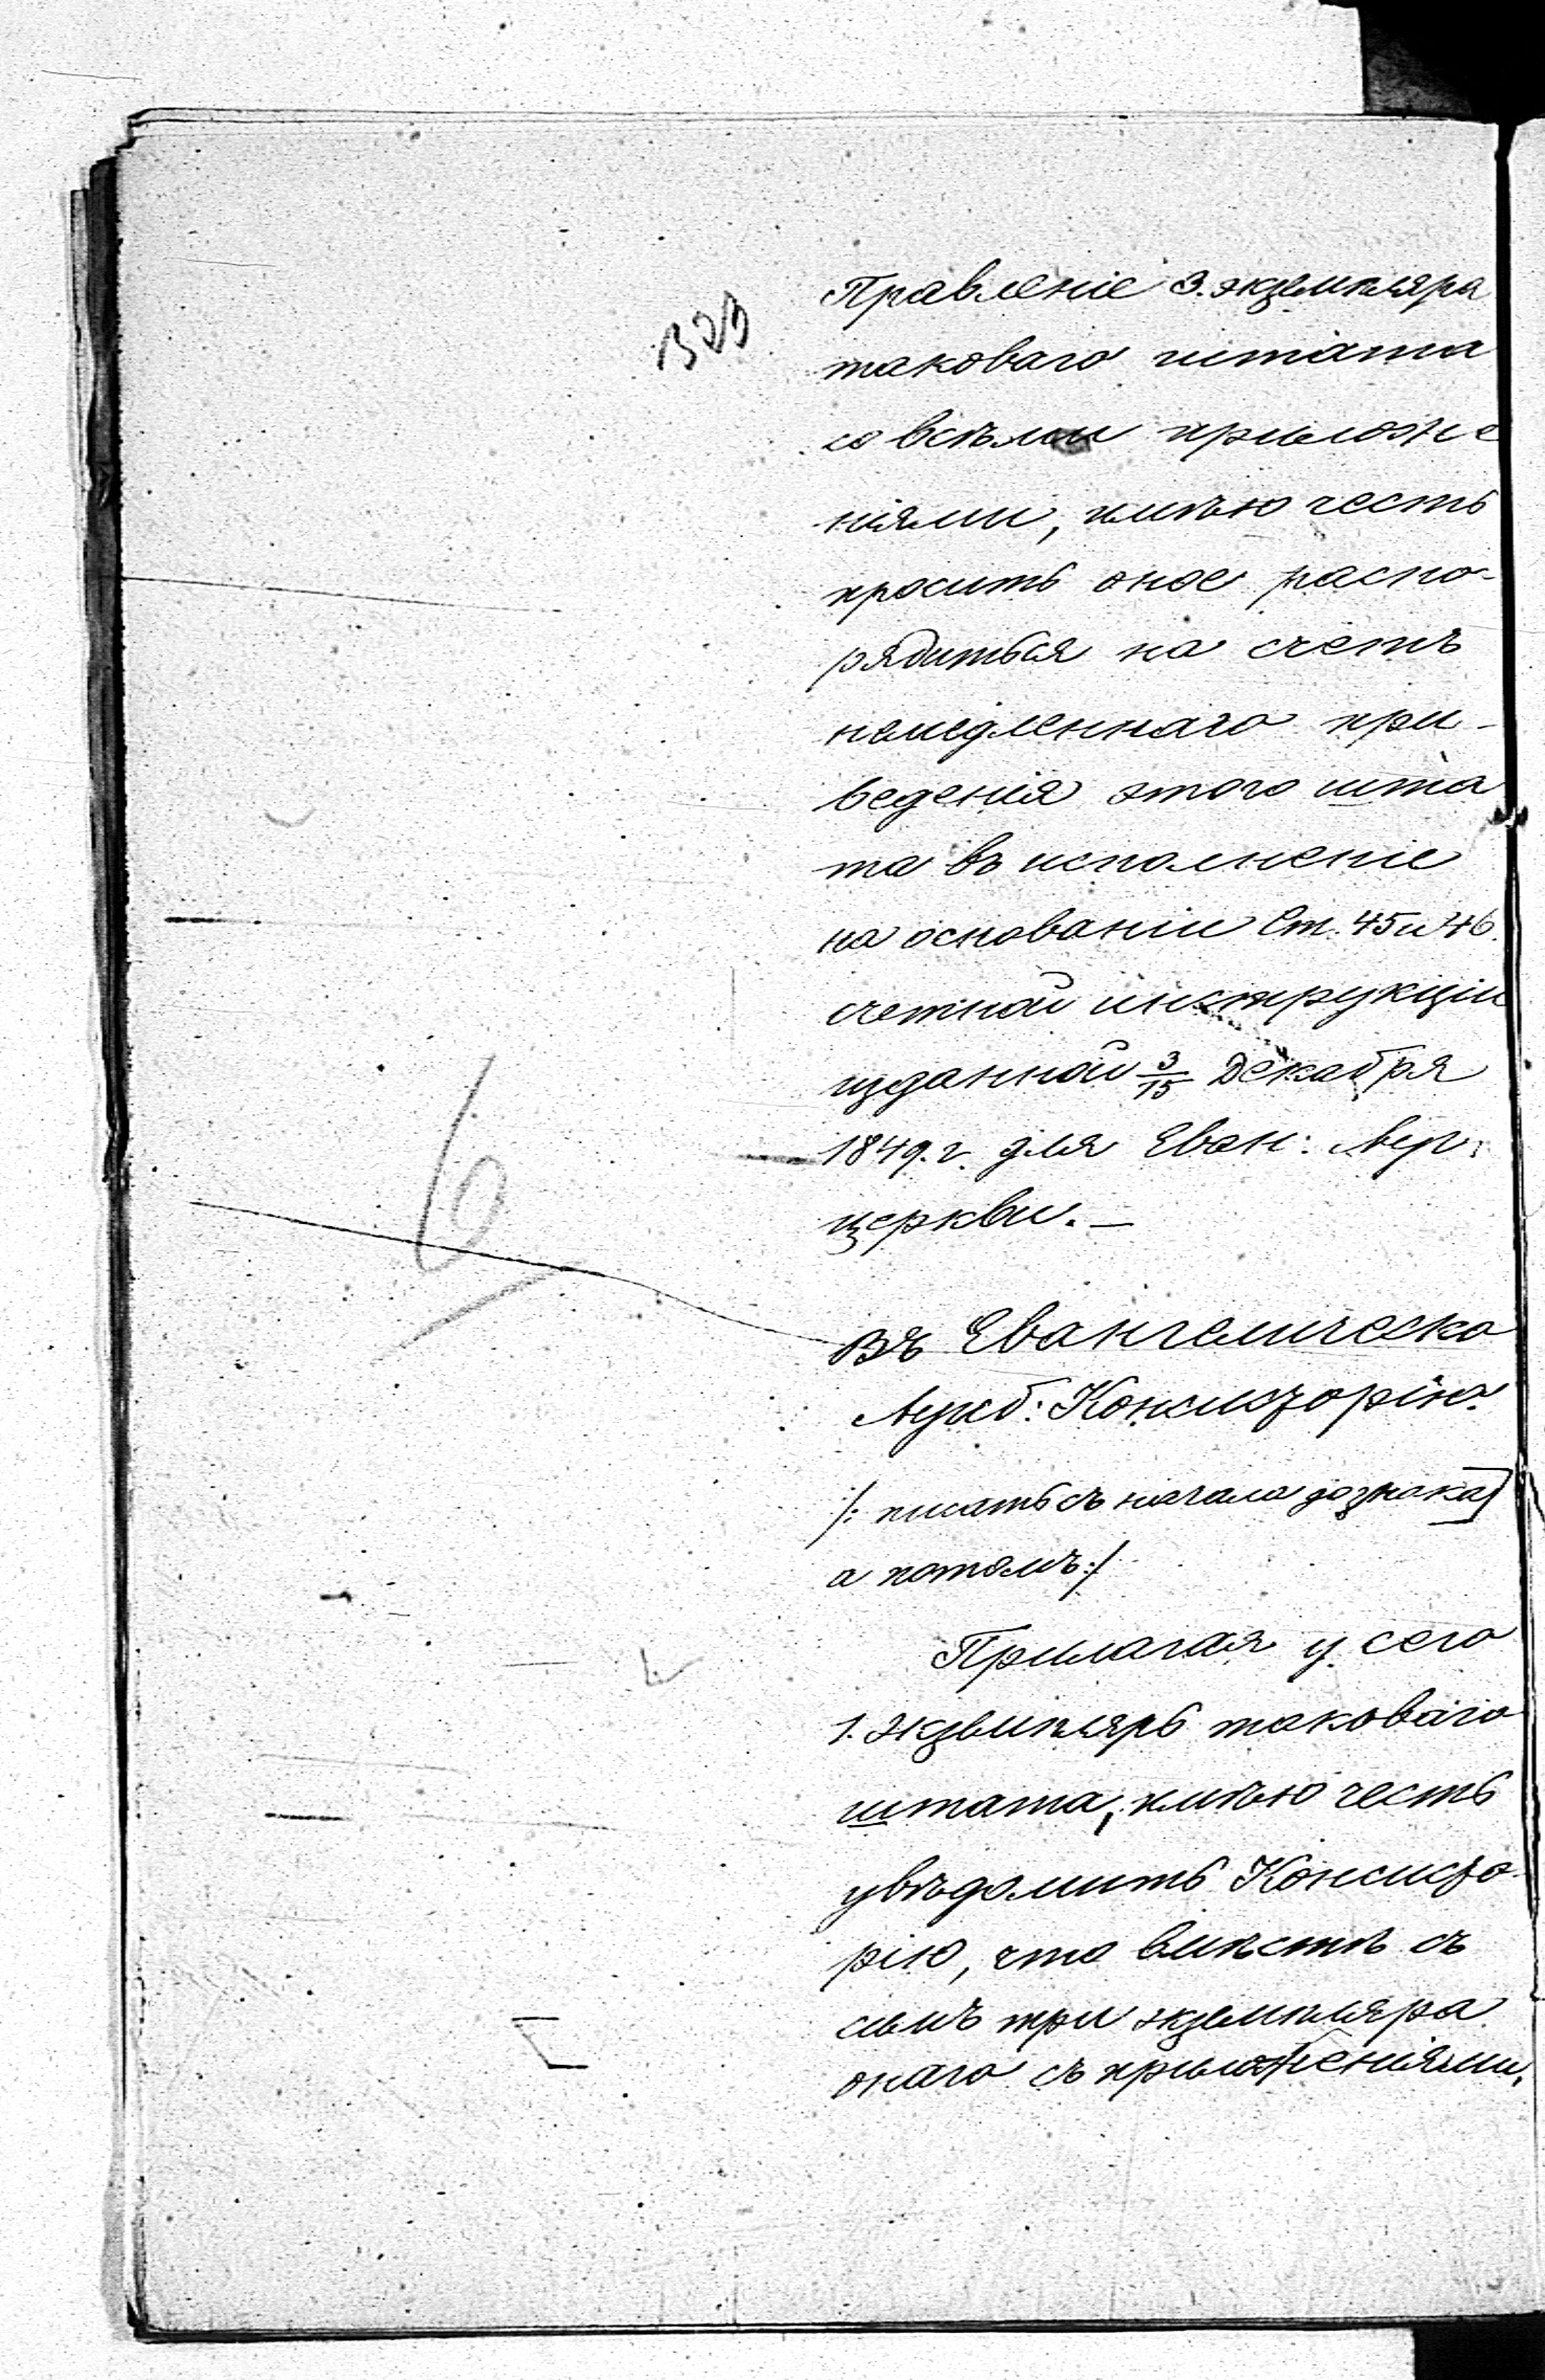 Правленіе 3. экземпляра
таковаго штата
со всѣми приложе
ніями, имѣю честь
просить оное распо-
рядиться на счетъ
немедленнаго при-
веденія этого шта
та въ исполненіе
на основаніи Ст. 45 и 46.
счетной инструкціи
изданной 3/15 Декабря
1849. г. для Еван: Аугс:
церкви. —
Въ Евангелическо
Аугсб: Консисторію.
/: писать съ начала до знака]
а потомъ :/
Прилагая у сего
1. экземпляръ таковаго
штата, имѣю честь
увѣдомить Консисто-
рію, что вмѣстѣ съ
симъ три экземпляра
онаго съ приложеніями,